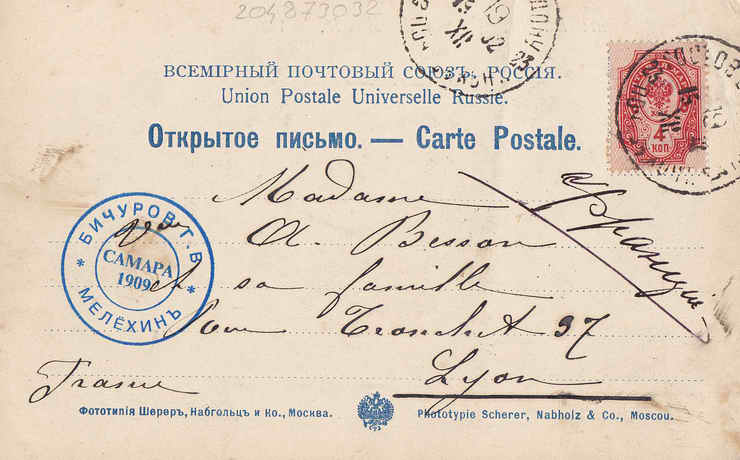 204873032
ВСЕМІРНЫЙ ПОЧТОВЫЙ СОЮЗЪ, РОССІЯ.
Union Postale Universelle Russie.
Открытое письмо. — Carte Postale.
4
КОП
Madame
Vve A. Besson
et sa famille
Rue Tronchet 37
Lyon
France
БИЧУРОВ Т. В
САМАРА
1909
МЕЛЁХИНЪ
Фототипія Шереръ, Набгольцъ и Ко., Москва.
Phototypie Scherer, Nabholz & Co., Moscou.